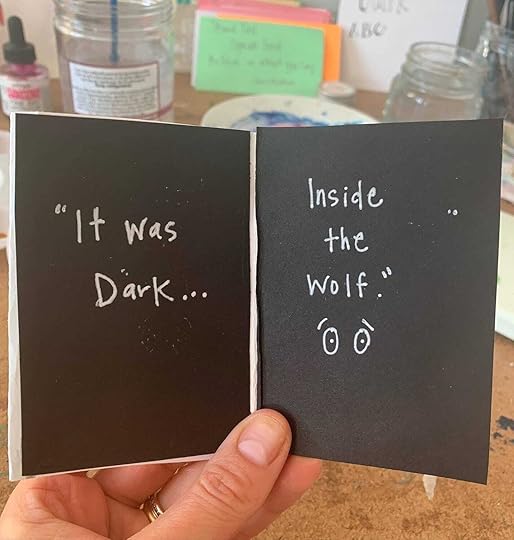 "It was
Dark...
Inside
the
Wolf."
ABC